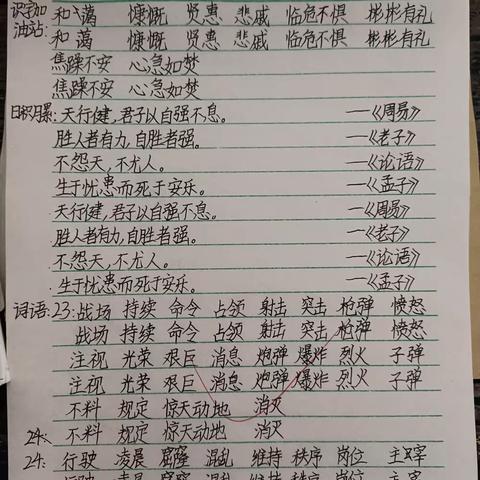 识字加 和蔼 慷慨 贤惠 悲戚 临危不惧 彬彬有礼
油站: 和蔼 慷慨 贤惠 悲戚 临危不惧 彬彬有礼
焦躁不安 心急如焚
焦躁不安 心急如焚
日积月累: 天行健,君子以自强不息。 —《周易》
胜人者有力,自胜者强。 —《老子》
不怨天,不尤人。 —《论语》
生于忧患而死于安乐。 —《孟子》
天行健,君子以自强不息。 —《周易》
胜人者有力,自胜者强。 —《老子》
不怨天,不尤人。 —《论语》
生于忧患而死于安乐。 —《孟子》
词语: 23: 战场 持续 命令 占领 射击 突击 枪弹 愤怒
战场 持续 命令 占领 射击 突击 枪弹 愤怒
注视 光荣 艰巨 消息 炮弹 爆炸 烈火 子弹
注视 光荣 艰巨 消息 炮弹 爆炸 烈火 子弹
不料 规定 惊天动地 消灭
24: 不料 规定 惊天动地 消灭
24: 行驶 凌晨 窟窿 混乱 维持 秩序 岗位 主宰
行驶 凌晨 窟窿 混乱 维持 秩序 岗位 主宰